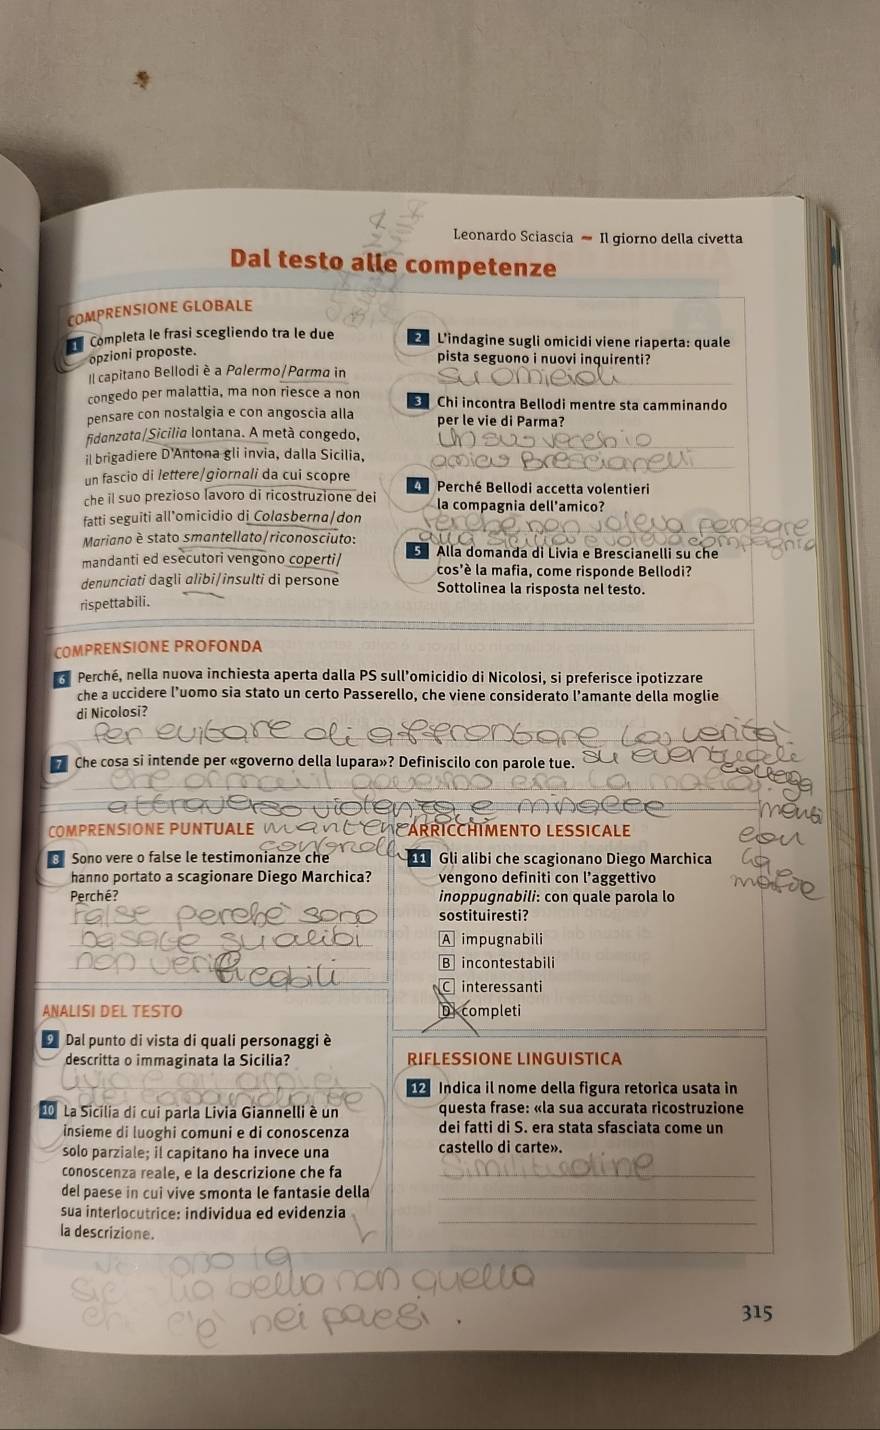 Leonardo Sciascia – Il giorno della civetta
Dal testo alle competenze
COMPRENSIONE GLOBALE
1 Completa le frasi scegliendo tra le due
opzioni proposte.
Il capitano Bellodi è a Palermo/Parma in
congedo per malattia, ma non riesce a non
pensare con nostalgia e con angoscia alla
fidanzata/Sicilia lontana. A metà congedo,
il brigadiere D'Antona gli invia, dalla Sicilia,
un fascio di lettere/giornali da cui scopre
che il suo prezioso lavoro di ricostruzione dei
fatti seguiti all'omicidio di Colasberna/don
Mariano è stato smantellato/riconosciuto:
mandanti ed esecutori vengono coperti/
denunciati dagli alibi/insulti di persone
rispettabili.
2 L'indagine sugli omicidi viene riaperta: quale
pista seguono i nuovi inquirenti?
Su omicidi
3 Chi incontra Bellodi mentre sta camminando
per le vie di Parma?
Un suo vecchio
amico Brescianelli
4 Perché Bellodi accetta volentieri
la compagnia dell'amico?
Perche non voleva pensare
alla Sicilia e voleva compagnia
5 Alla domanda di Livia e Brescianelli su che
cos'è la mafia, come risponde Bellodi?
Sottolinea la risposta nel testo.
COMPRENSIONE PROFONDA
6 Perché, nella nuova inchiesta aperta dalla PS sull'omicidio di Nicolosi, si preferisce ipotizzare
che a uccidere l'uomo sia stato un certo Passerello, che viene considerato l'amante della moglie
di Nicolosi?
Per evitare di affrontare la verità
su eventuali
collega
menti
con
la
mafia
7 Che cosa si intende per «governo della lupara»? Definiscilo con parole tue.
Che ormai il governo era la mafia
attraverso violenza e minacce
mantene
controllo
COMPRENSIONE PUNTUALE
8 Sono vere o false le testimonianze che
hanno portato a scagionare Diego Marchica?
Perché?
False perchè sono
basate su alibi
non verificabili
ANALISI DEL TESTO
9 Dal punto di vista di quali personaggi è
descritta o immaginata la Sicilia?
Livia e gli amici
10 La Sicilia di cui parla Livia Giannelli è un
insieme di luoghi comuni e di conoscenza
solo parziale; il capitano ha invece una
conoscenza reale, e la descrizione che fa
del paese in cui vive smonta le fantasie della
sua interlocutrice: individua ed evidenzia
la descrizione.
ARRICCHIMENTO LESSICALE
11 Gli alibi che scagionano Diego Marchica
vengono definiti con l'aggettivo
inoppugnabili: con quale parola lo
sostituiresti?
A impugnabili
B incontestabili
C interessanti
D completi
RIFLESSIONE LINGUISTICA
12 Indica il nome della figura retorica usata in
questa frase: «la sua accurata ricostruzione
dei fatti di S. era stata sfasciata come un
castello di carte».
Similitudine
la
Sicilia bella non quella
che c'è nei paesi.
315